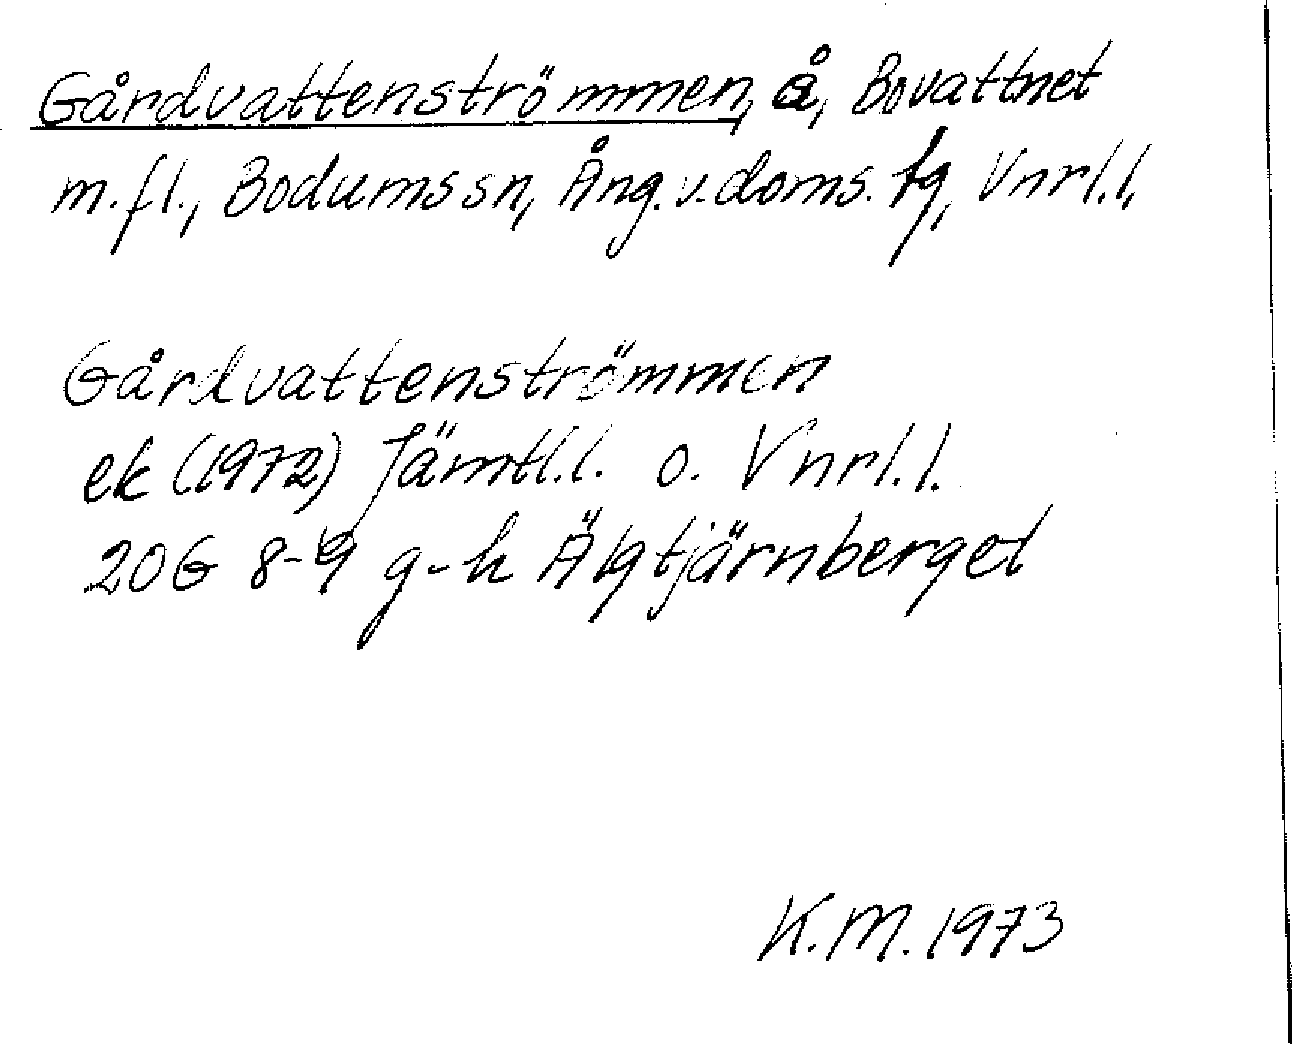 Gårdvattenströmmen, å, Bovattnet
m.fl., Bodums sn, Ång.v.doms. fg, Vnrl.l.
Gårdvattenströmmen
ek (1972) Jämtl.l. o. Vnrl.l.
20G 8-9 g-h Älgtjärnberget
K.M. 1973